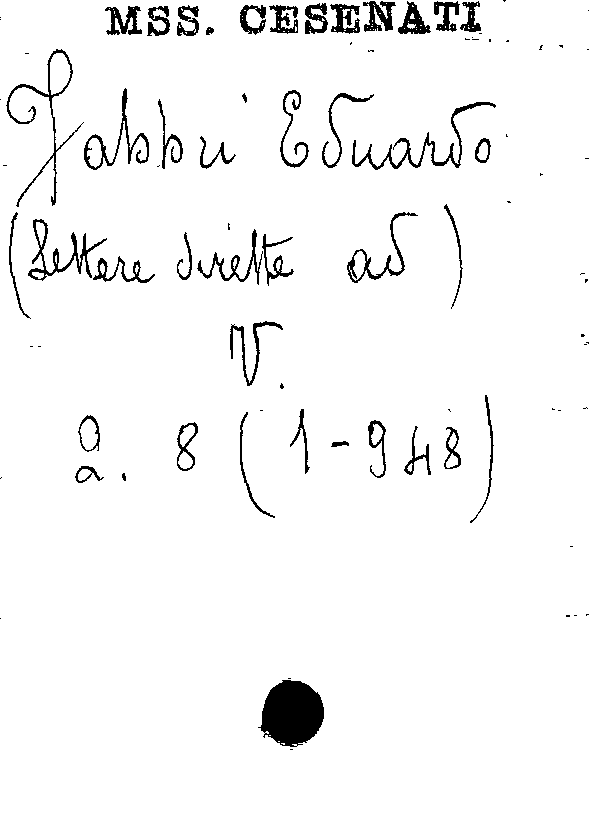 MSS. CESENATI
Fabbri Eduardo
(Lettere dirette ad)
V.
Q. 8 (1-948)